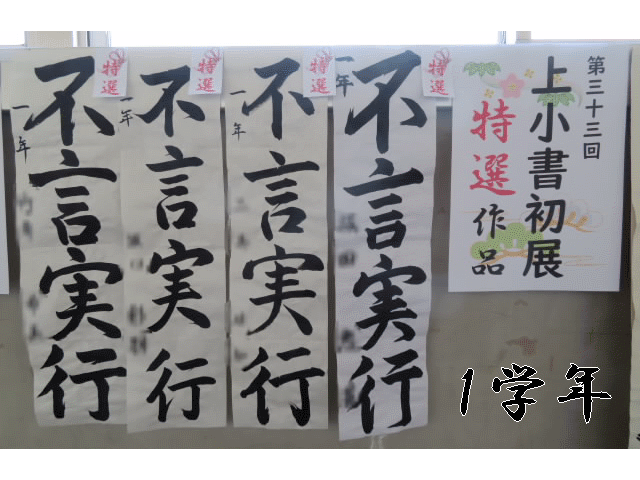 第三十三回
上小書初展
特選作品
特選
一年
不言実行
特選
一年
不言実行
特選
一年
不言実行
特選
一年
不言実行
1学年